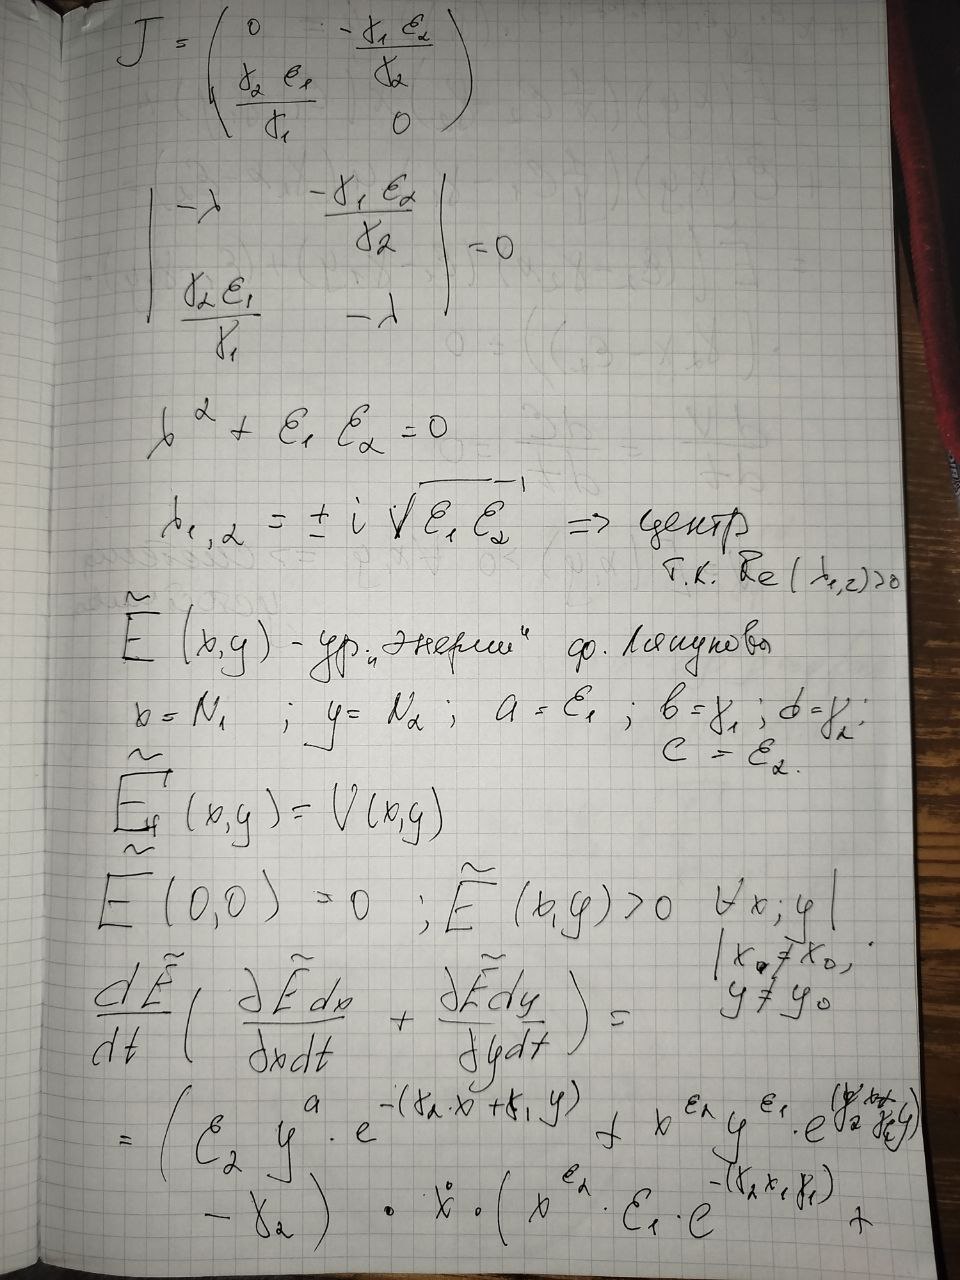 J = ( 0 -γ₁ ε₂ / γ₂
γ₂ ε₁ / γ₁ 0 )
| -λ -γ₁ ε₂ / γ₂ |
| γ₂ ε₁ / γ₁ -λ | = 0
λ² + ε₁ ε₂ = 0
λ₁,₂ = ± i √ε₁ ε₂ => центр
т.к. Re (λ₁,₂) > 0
Ẽ (x,y) - ур. „энергии" ф. Ляпунова
x = N₁ ; y = N₂ ; a = ε₁ ; b = γ₁ ; d = γ₂ ;
c = ε₂.
Ẽ (x,y) = V(x,y)
Ẽ (0,0) = 0 ; Ẽ (x,y) > 0 ∀ x; y |
| x₀ ≠ x₀ ;
y ≠ y₀
dẼ/dt ( ∂Ẽ dx / ∂x dt + ∂Ẽ dy / ∂y dt ) =
= ( ε₂ y^a · e^-(γ₂·x + γ₁ y) + x^ε₂ y^ε₁ · e
- γ₂ ) · ẋ · ( x^ε₂ · ε₁ · e^-(γ₂ x₁ γ₁) +